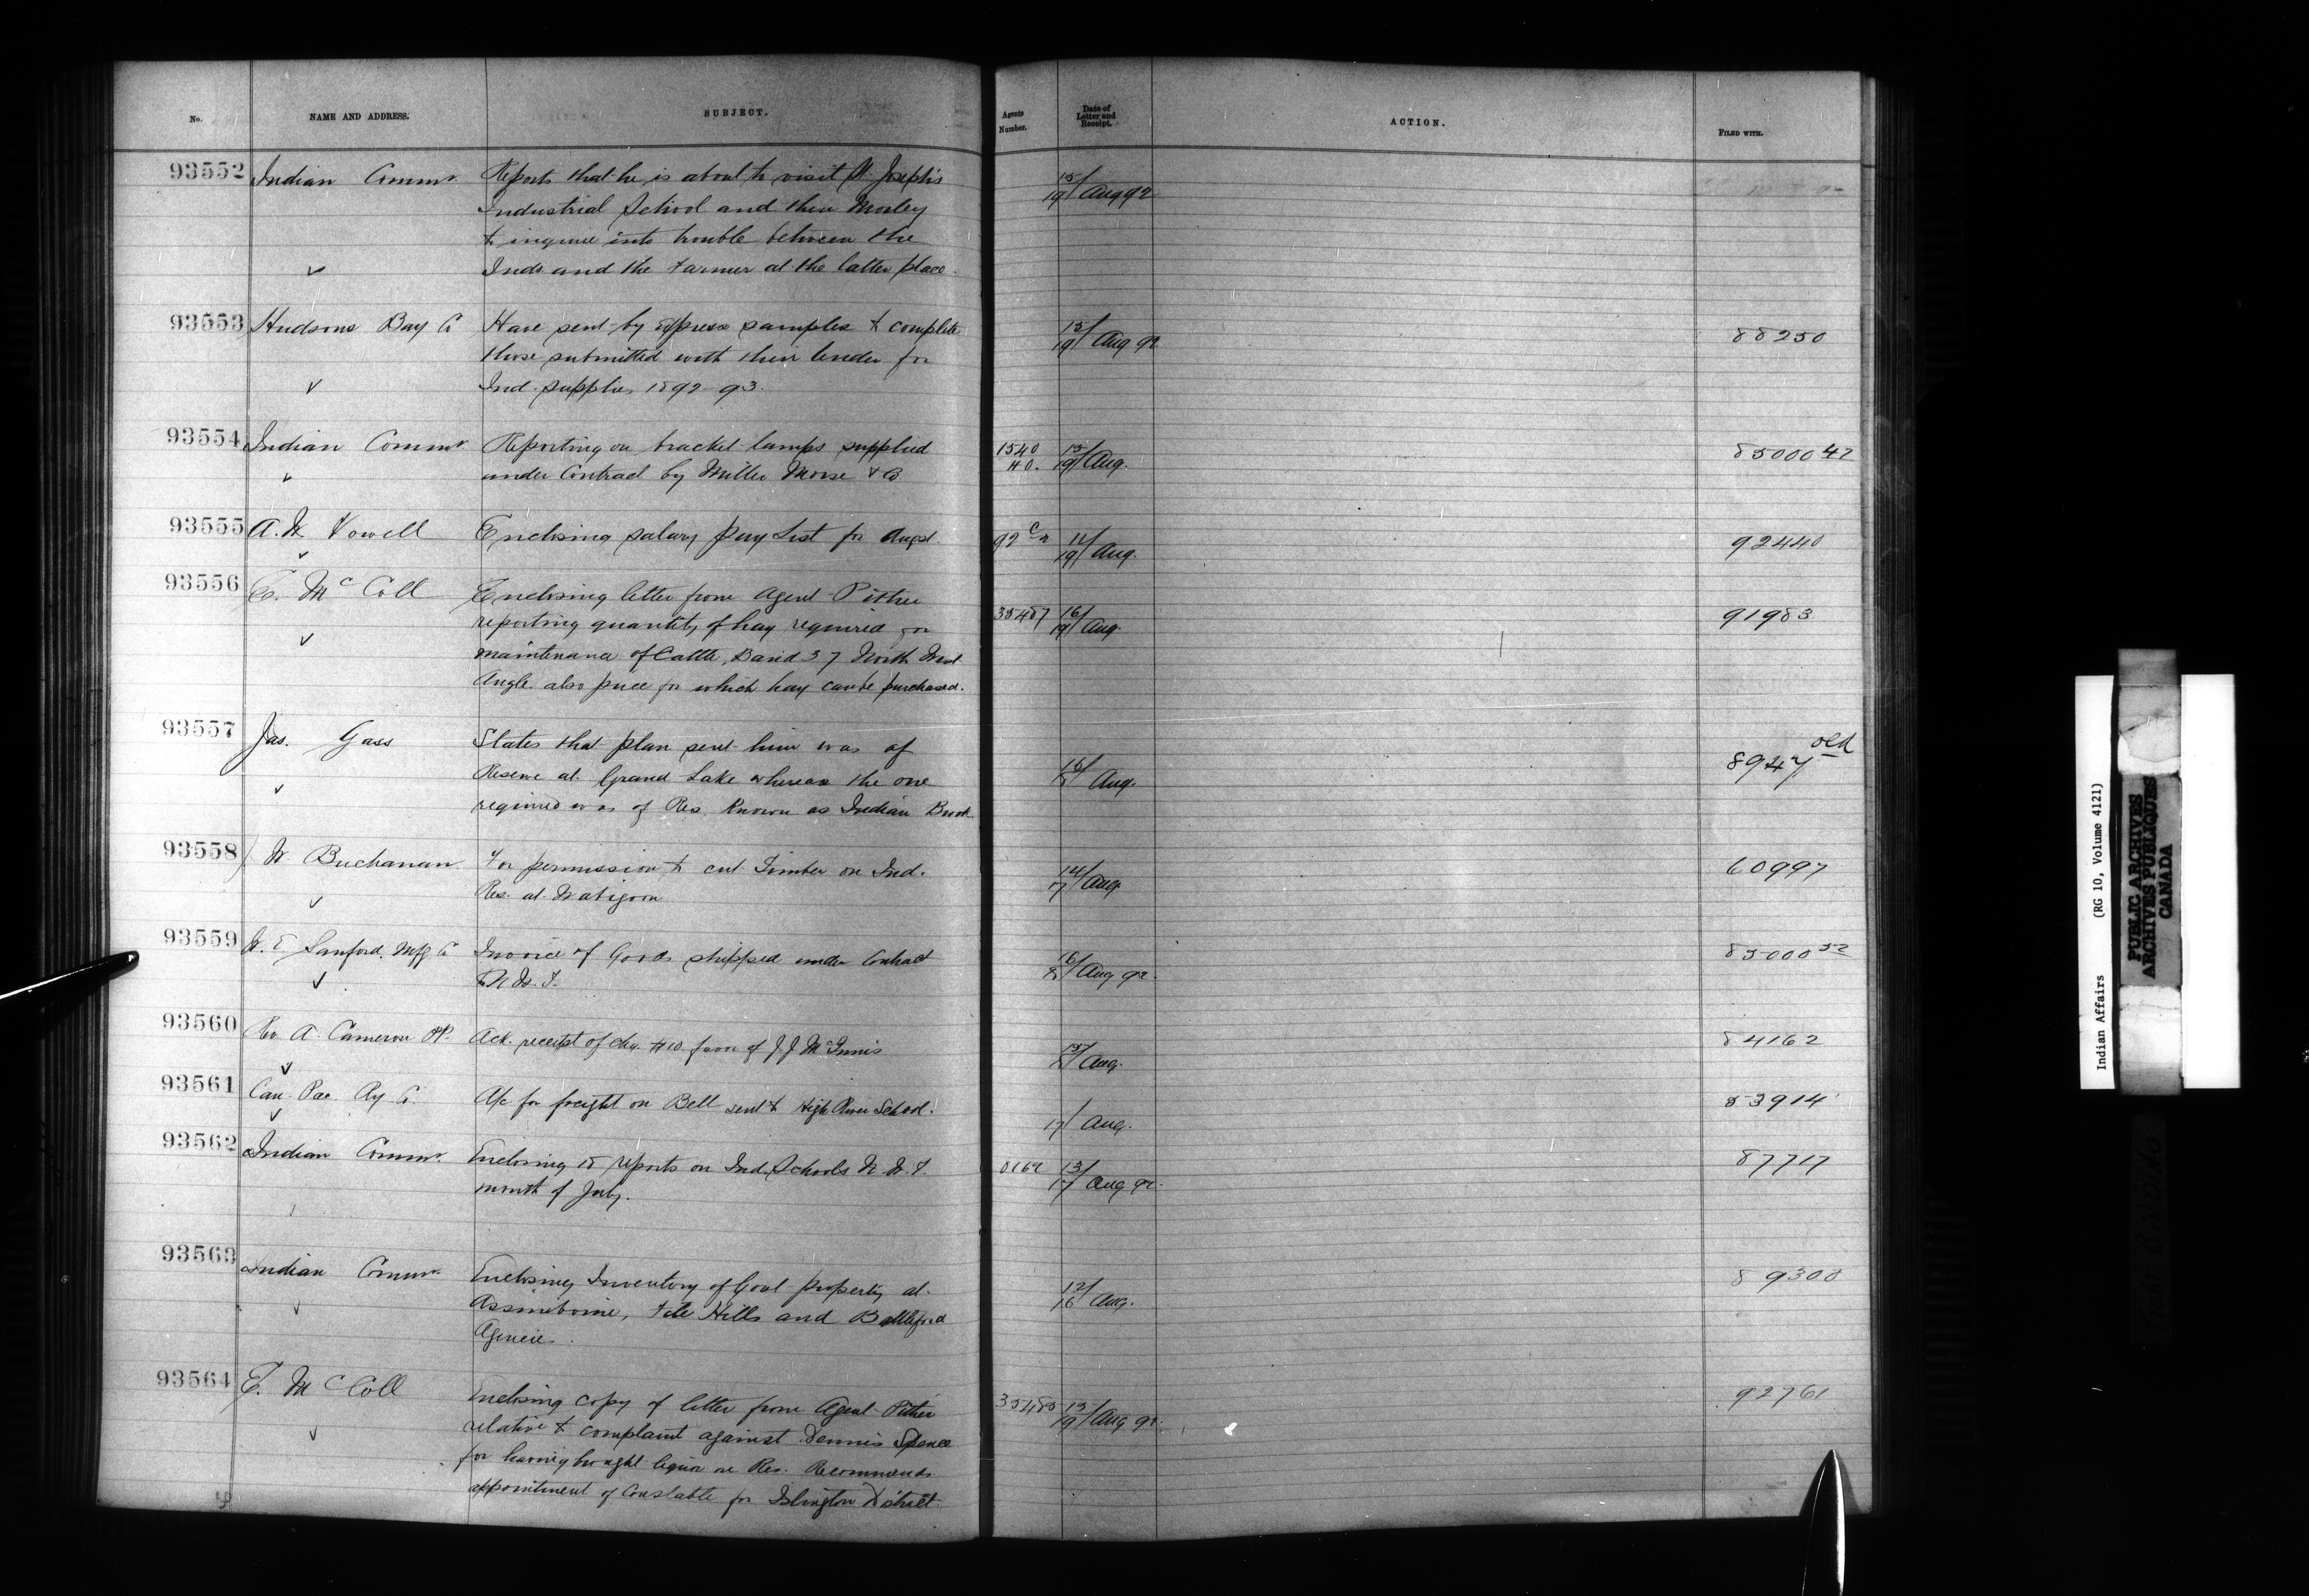 No.
NAME AND ADDRESS.
SUBJECT.
Agents
Number.
Date of
Letter and
Receipt.
ACTION.
FILED WITH.
93552 Indian Commr. Reports that he is about to visit St. Joseph's 15/19 Aug 92
Industrial School and then Morley
to inquire into trouble between the
Inds and the Farmer at the latter place.
93553 Hudsons Bay Co Have sent by express samples to complete 15/19 Aug 92 88250
those submitted with their tender for
Ind. supplies 1892-93.
93554 Indian Commr. Reporting on bracket lamps supplied 1540 15/19 Aug. 85000 42
under Contract by Miller Morse & Co
93555 A. W. Vowell Enclosing salary Pay List for Augst. 11/19 Aug. 92440
93556 E. McColl Enclosing letter from Agent Pither 35487 16/19 Aug. 91983
reporting quantity of hay required for
maintenance of Cattle, Band 37 North West
Angle also price for which hay can be purchased.
93557 Jas. Gass States that plan sent him was of Aug. 8947 old
Reserve at Grand Lake whereas the one
required was of Res. known as Indian Brook
93558 W Buchanan For permission to cut Timber on Ind. Aug. 60997
Res. at Wabigoon
93559 W. E Sanford Mfg Co Invoice of Goods shipped under Contract Aug 92. 85000 52
to N. W. T.
93560 Rev A. Cameron PP. Ack. receipt of chq. #10 favor of J J McInnis Aug. 84162
93561 Can. Pac. Ry Co. A/c for freight on Bell sent to High River School. 17/ Aug. 83914
93562 Indian Commr. Enclosing 18 reports on Ind. Schools N. W. T. 0162 13/17 Aug 92. 87717
month of July.
93563 Indian Commr. Enclosing Inventory of Govt property at 12/16 Aug. 89308
Assiniboine, File Hills and Battleford
Agencies.
93564 E. McColl Enclosing copy of letter from Agent Pither 35485 15/19 Aug 92. 92761
relative to complaint against Dennis Spence
for having brought liquor on Res. Recommends
appointment of Constable for Islington District.
Indian Affairs (RG 10, Volume 4121)
PUBLIC ARCHIVES
ARCHIVES PUBLIQUES
CANADA